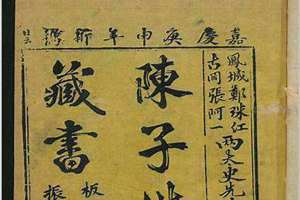 嘉慶庚申年新鐫
鳳城鄭珠江
古岡張阿一
兩吳史先
陳子
藏書
板
振